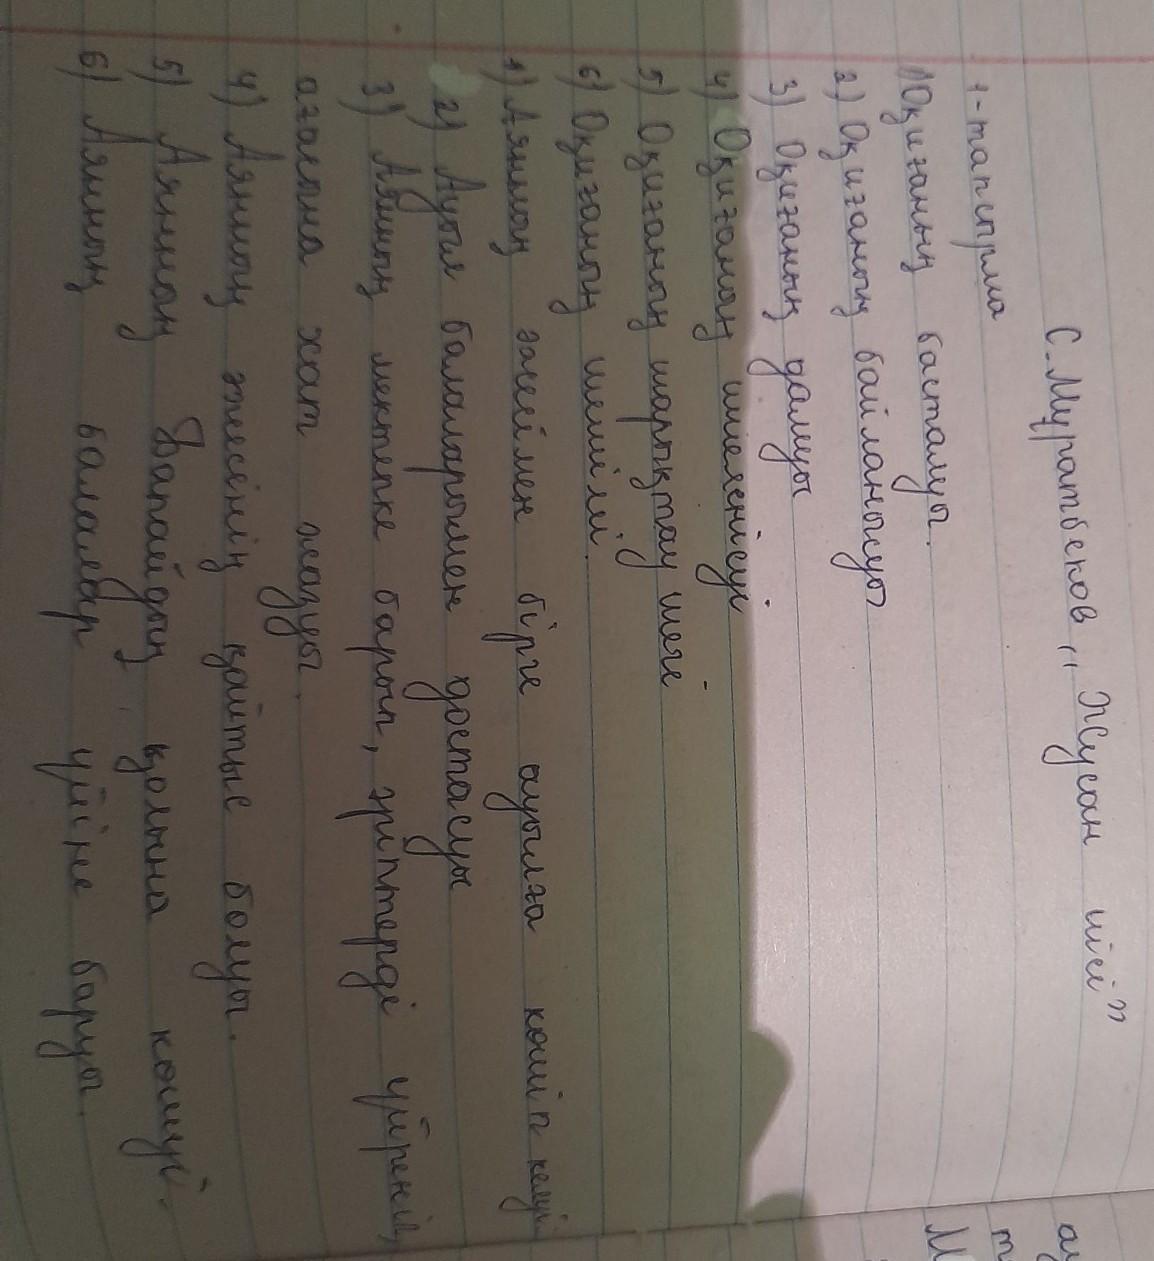 С.Мұратбеков „Жусан иісі"
1-тапсырма
1) Оқиғаның басталуы.
2) Оқиғаның байланысуы
3) Оқиғаның дамуы
4) Оқиғаның шиеленісуі
5) Оқиғаның шарықтау шегі
6) Оқиғаның шешімі.
1) Аянның әжесімен бірге ауылға көшіп келуі
2) Ауыл балаларымен достасуы
3) Аянның мектепке барып, әріптерді үйреніп,
ағасына хат жазуы.
4) Аянның әжесінің қайтыс болуы.
5) Аянның Бапайдың қолына көшуі.
6) Аянның балалар үйіне баруы.